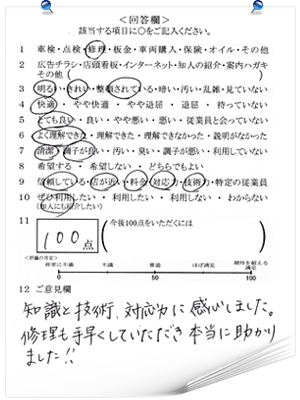 <回答欄>
該当する項目に○をご記入ください。
1 車検・点検・修理・板金・車両購入・保険・オイル・その他
2 広告チラシ・店頭看板・インターネット・知人の紹介・案内ハガキ
その他( )
3 明るい・きれい・整頓されている・暗い・汚い・乱雑・見ていない
4 快適・やや快適・やや退屈・退屈・待っていない
5 とても良い・良い・やや悪い・悪い・従業員と会っていない
6 よく理解できた・理解できた・理解できなかった・説明がなかった
7 清潔・調子が良い・汚い・臭い・調子が悪い・利用していない
8 希望する・希望しない・どちらでもよい
9 信頼している・店が近い・料金・対応力・技術力・特定の従業員
10 ぜひ利用したい・利用したい・利用しない・わからない
(知人にも紹介したい)
11 100点 (今後100点をいただくには )
<評価の目安>
非常に不満 不満 普通 ほぼ満足 期待を超える満足
0 50 100
12 ご意見欄
知識と技術、対応力に感心しました。
修理も手早くしていただき本当に助かり
ました!!